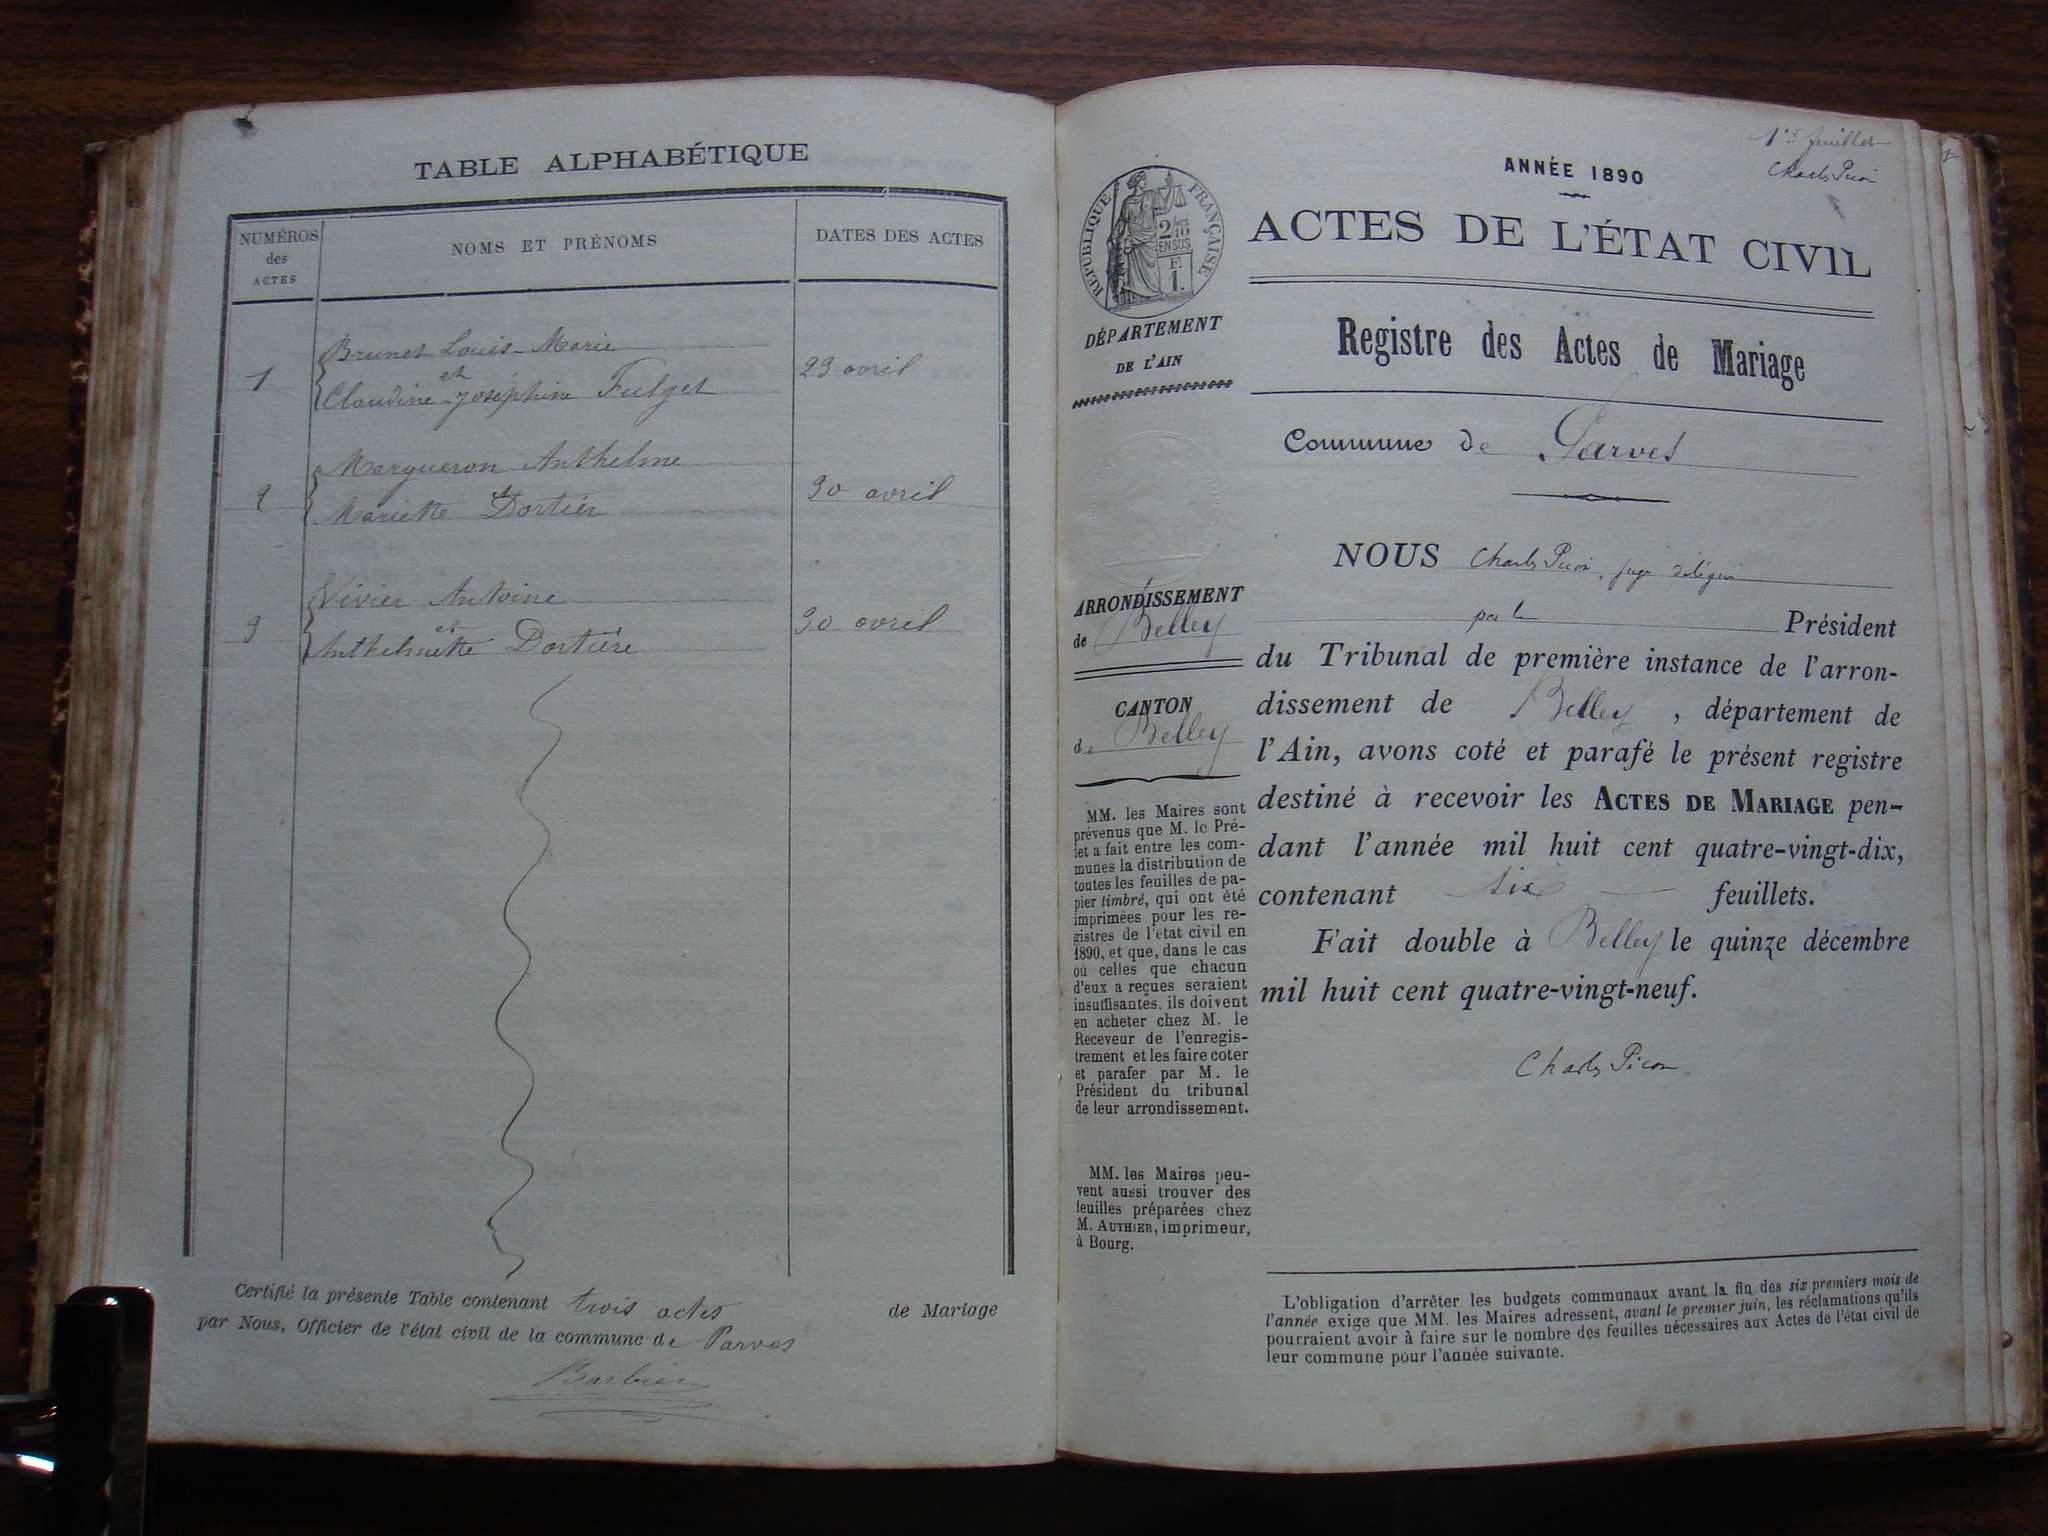 TABLE ALPHABÉTIQUE
NUMÉROS
des
ACTES
NOMS ET PRÉNOMS
DATES DES ACTES
1
Brunet Louis-Marie
et
Claudine-Joséphine Fulget
23 avril
2
Margueron Anthelme
et
Mariette Dortier
30 avril
3
Vivier Antoine
et
Anthelmette Dortière
30 avril
Certifié la présente Table contenant trois actes de Mariage
par Nous, Officier de l'état civil de la commune de Parves
Barbier
1er feuillet
Charles Picon
ANNÉE 1890
ACTES DE L'ÉTAT CIVIL
RÉPUBLIQUE FRANÇAISE
2/10
EN SUS
F.
1.
DÉPARTEMENT
DE L'AIN
Registre des Actes de Mariage
Commune de Parves
ARRONDISSEMENT
de Belley
CANTON
de Belley
MM. les Maires sont
prévenus que M. le Pré-
fet a fait entre les com-
munes la distribution de
toutes les feuilles de pa-
pier timbré, qui ont été
imprimées pour les re-
gistres de l'état civil en
1890, et que, dans le cas
où celles que chacun
d'eux a reçues seraient
insuffisantes, ils doivent
en acheter chez M. le
Receveur de l'enregis-
trement et les faire coter
et parafer par M. le
Président du tribunal
de leur arrondissement.
MM. les Maires peu-
vent aussi trouver des
feuilles préparées chez
M. AUTHIER, imprimeur,
à Bourg.
NOUS Charles Picon, juge délégué
par le Président
du Tribunal de première instance de l'arron-
dissement de Belley, département de
l'Ain, avons coté et parafé le présent registre
destiné à recevoir les ACTES DE MARIAGE pen-
dant l'année mil huit cent quatre-vingt-dix,
contenant six feuillets.
Fait double à Belley le quinze décembre
mil huit cent quatre-vingt-neuf.
Charles Picon
L'obligation d'arrêter les budgets communaux avant la fin des six premiers mois de
l'année exige que MM. les Maires adressent, avant le premier juin, les réclamations qu'ils
pourraient avoir à faire sur le nombre des feuilles nécessaires aux Actes de l'état civil de
leur commune pour l'année suivante.